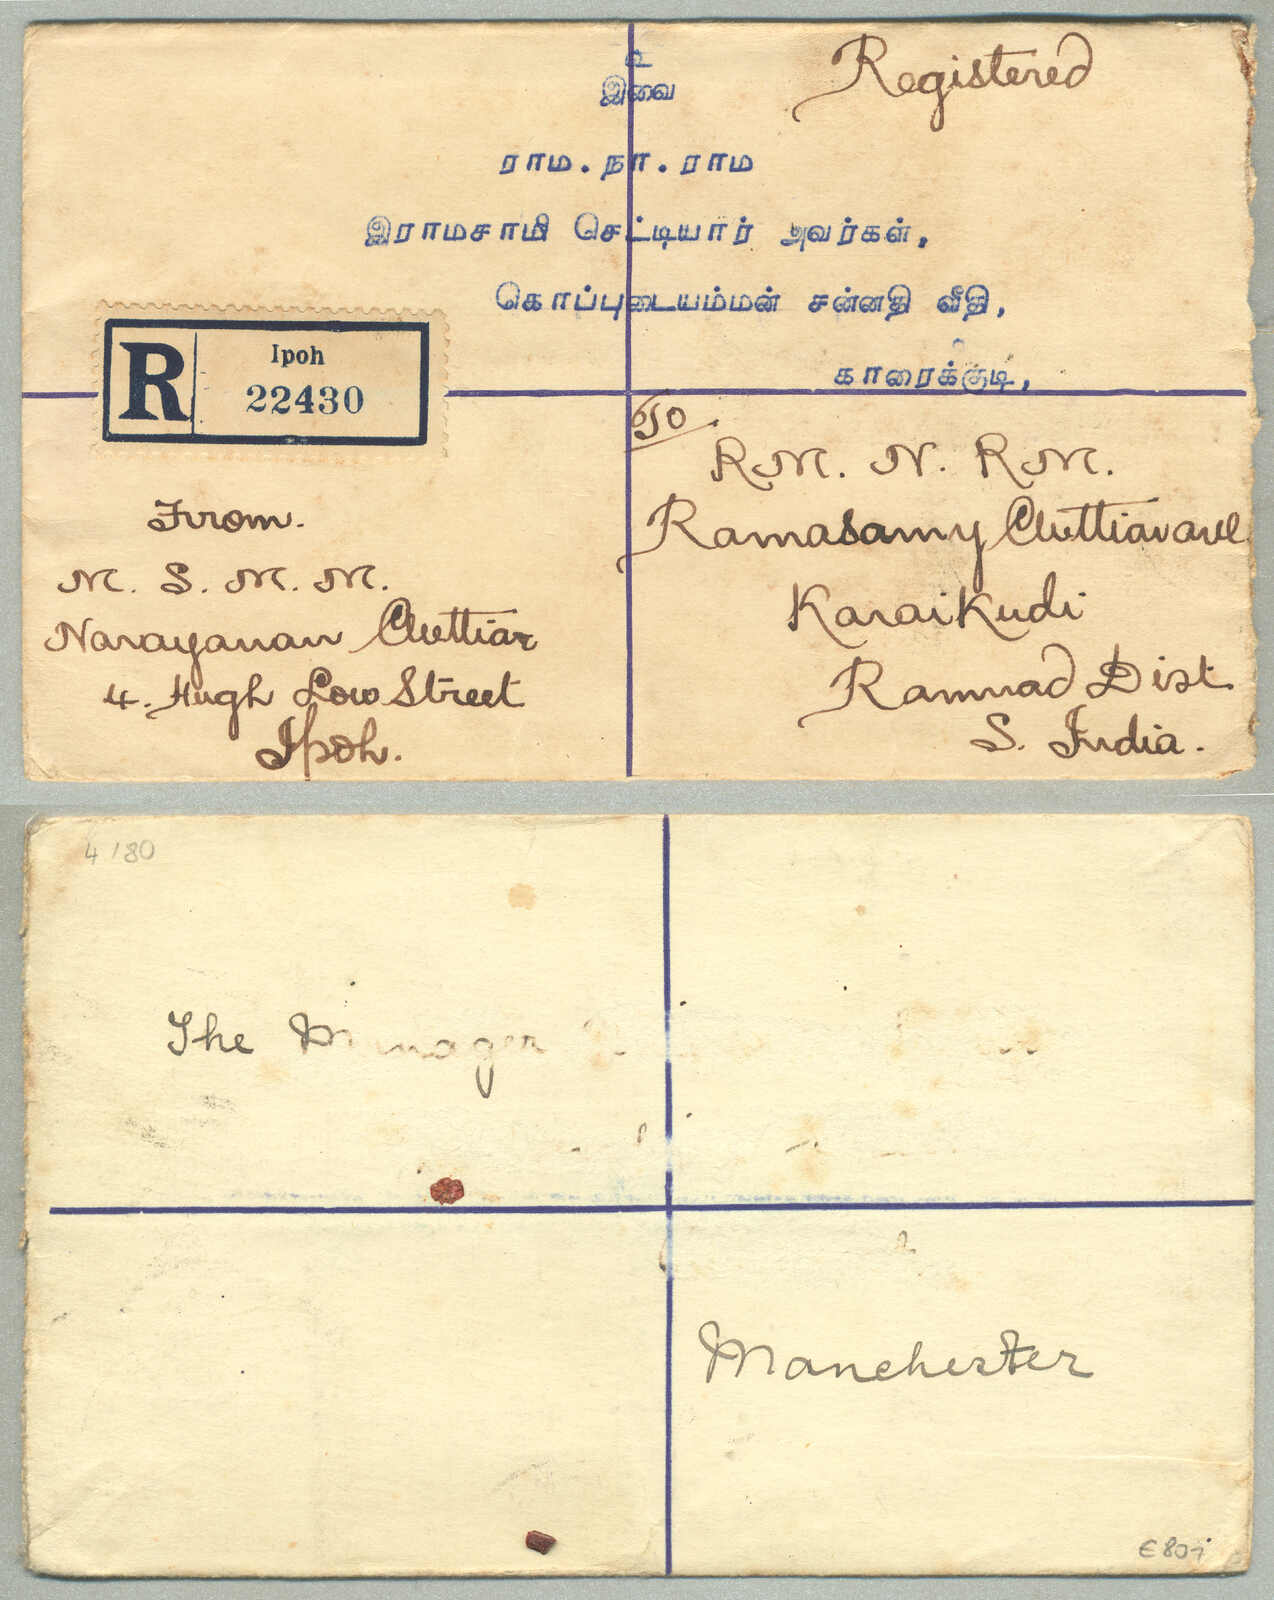 Registered
உ
இவை
ராம.நா.ராம
இராமசாமி செட்டியார் அவர்கள்,
கொப்புடையம்மன் சன்னதி வீதி,
காரைக்குடி,
R
Ipoh
22430
To
RM. N. RM.
Ramasamy Chettiar
Karaikudi
Ramnad Dist
S. India.
From.
M. S. M. M.
Narayanan Chettiar
4. Hugh Low Street
Ipoh.
4/80
The Manager
Manchester